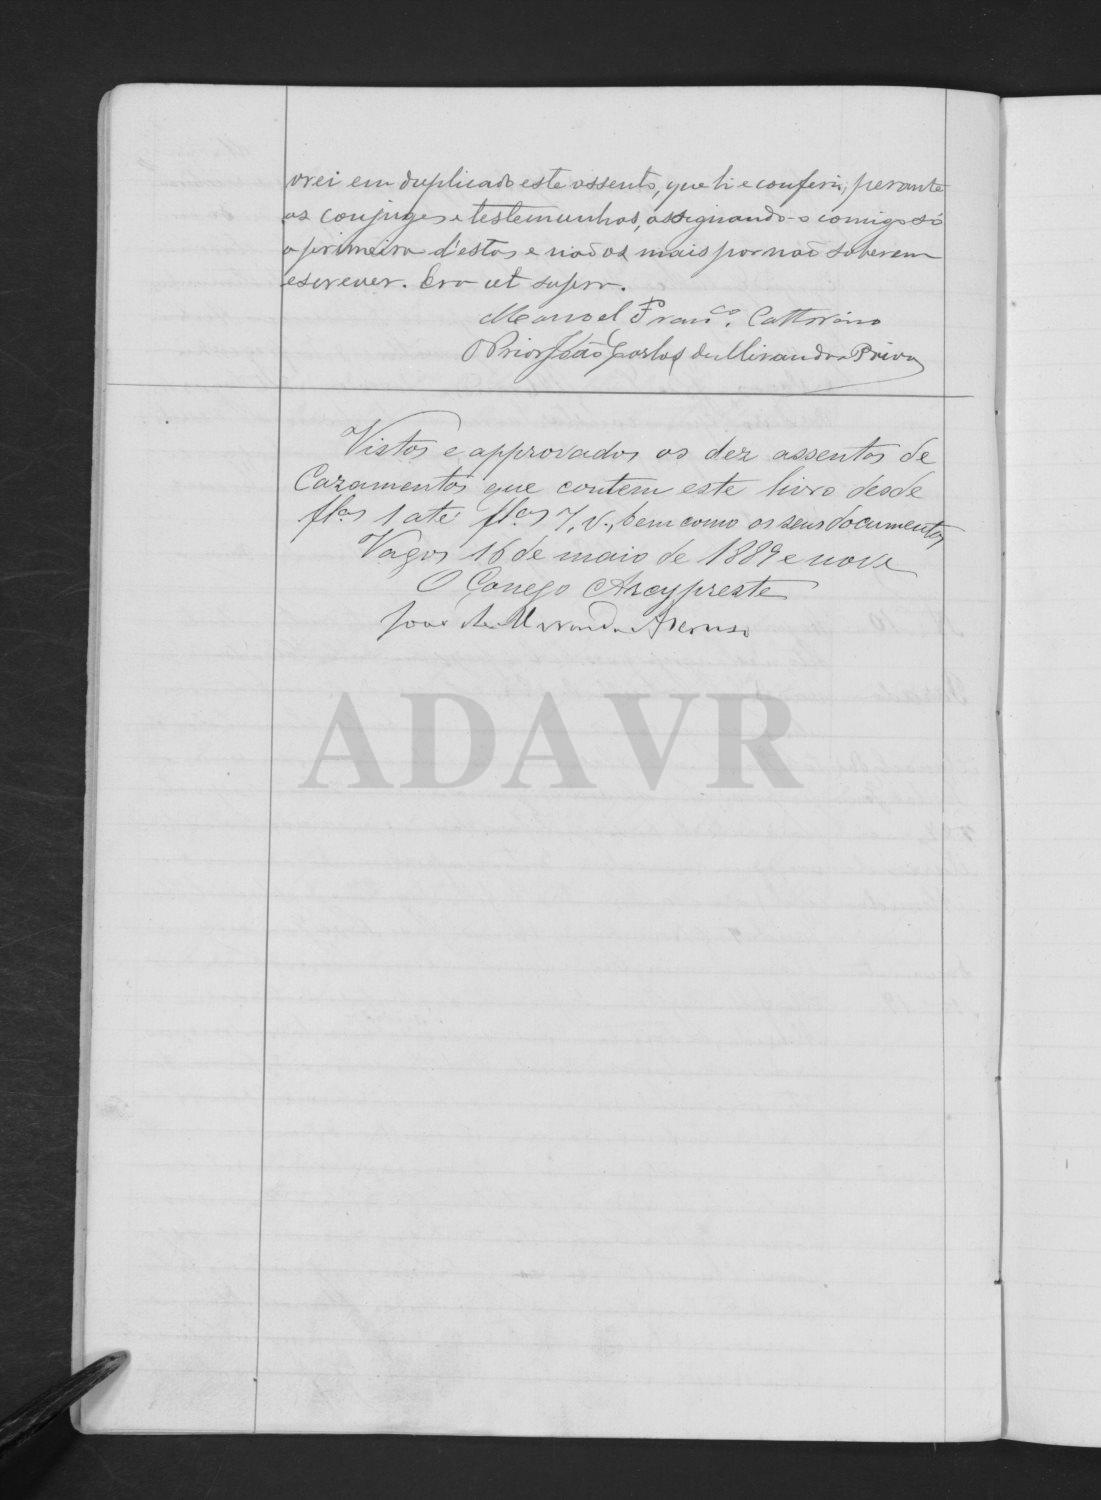 vrei em duplicado este assento, que li e conferi, perante
os conjuges e testemunhas, assignando-o comigo só
a primeira d'estas e não os mais por não saberem
escrever. Era ut supra.
Manoel Fran.co Catharino
O Prior João Carlos de Miranda
Vistos e approvados os dez assentos de
Cazamentos que contem este livro désde
fl.as 1 até fl.as 7, v., bem como os seus documentos
Vagos 16 de maio de 1889 e nove
O Conego Arcypreste
José de Miranda
ADAVR